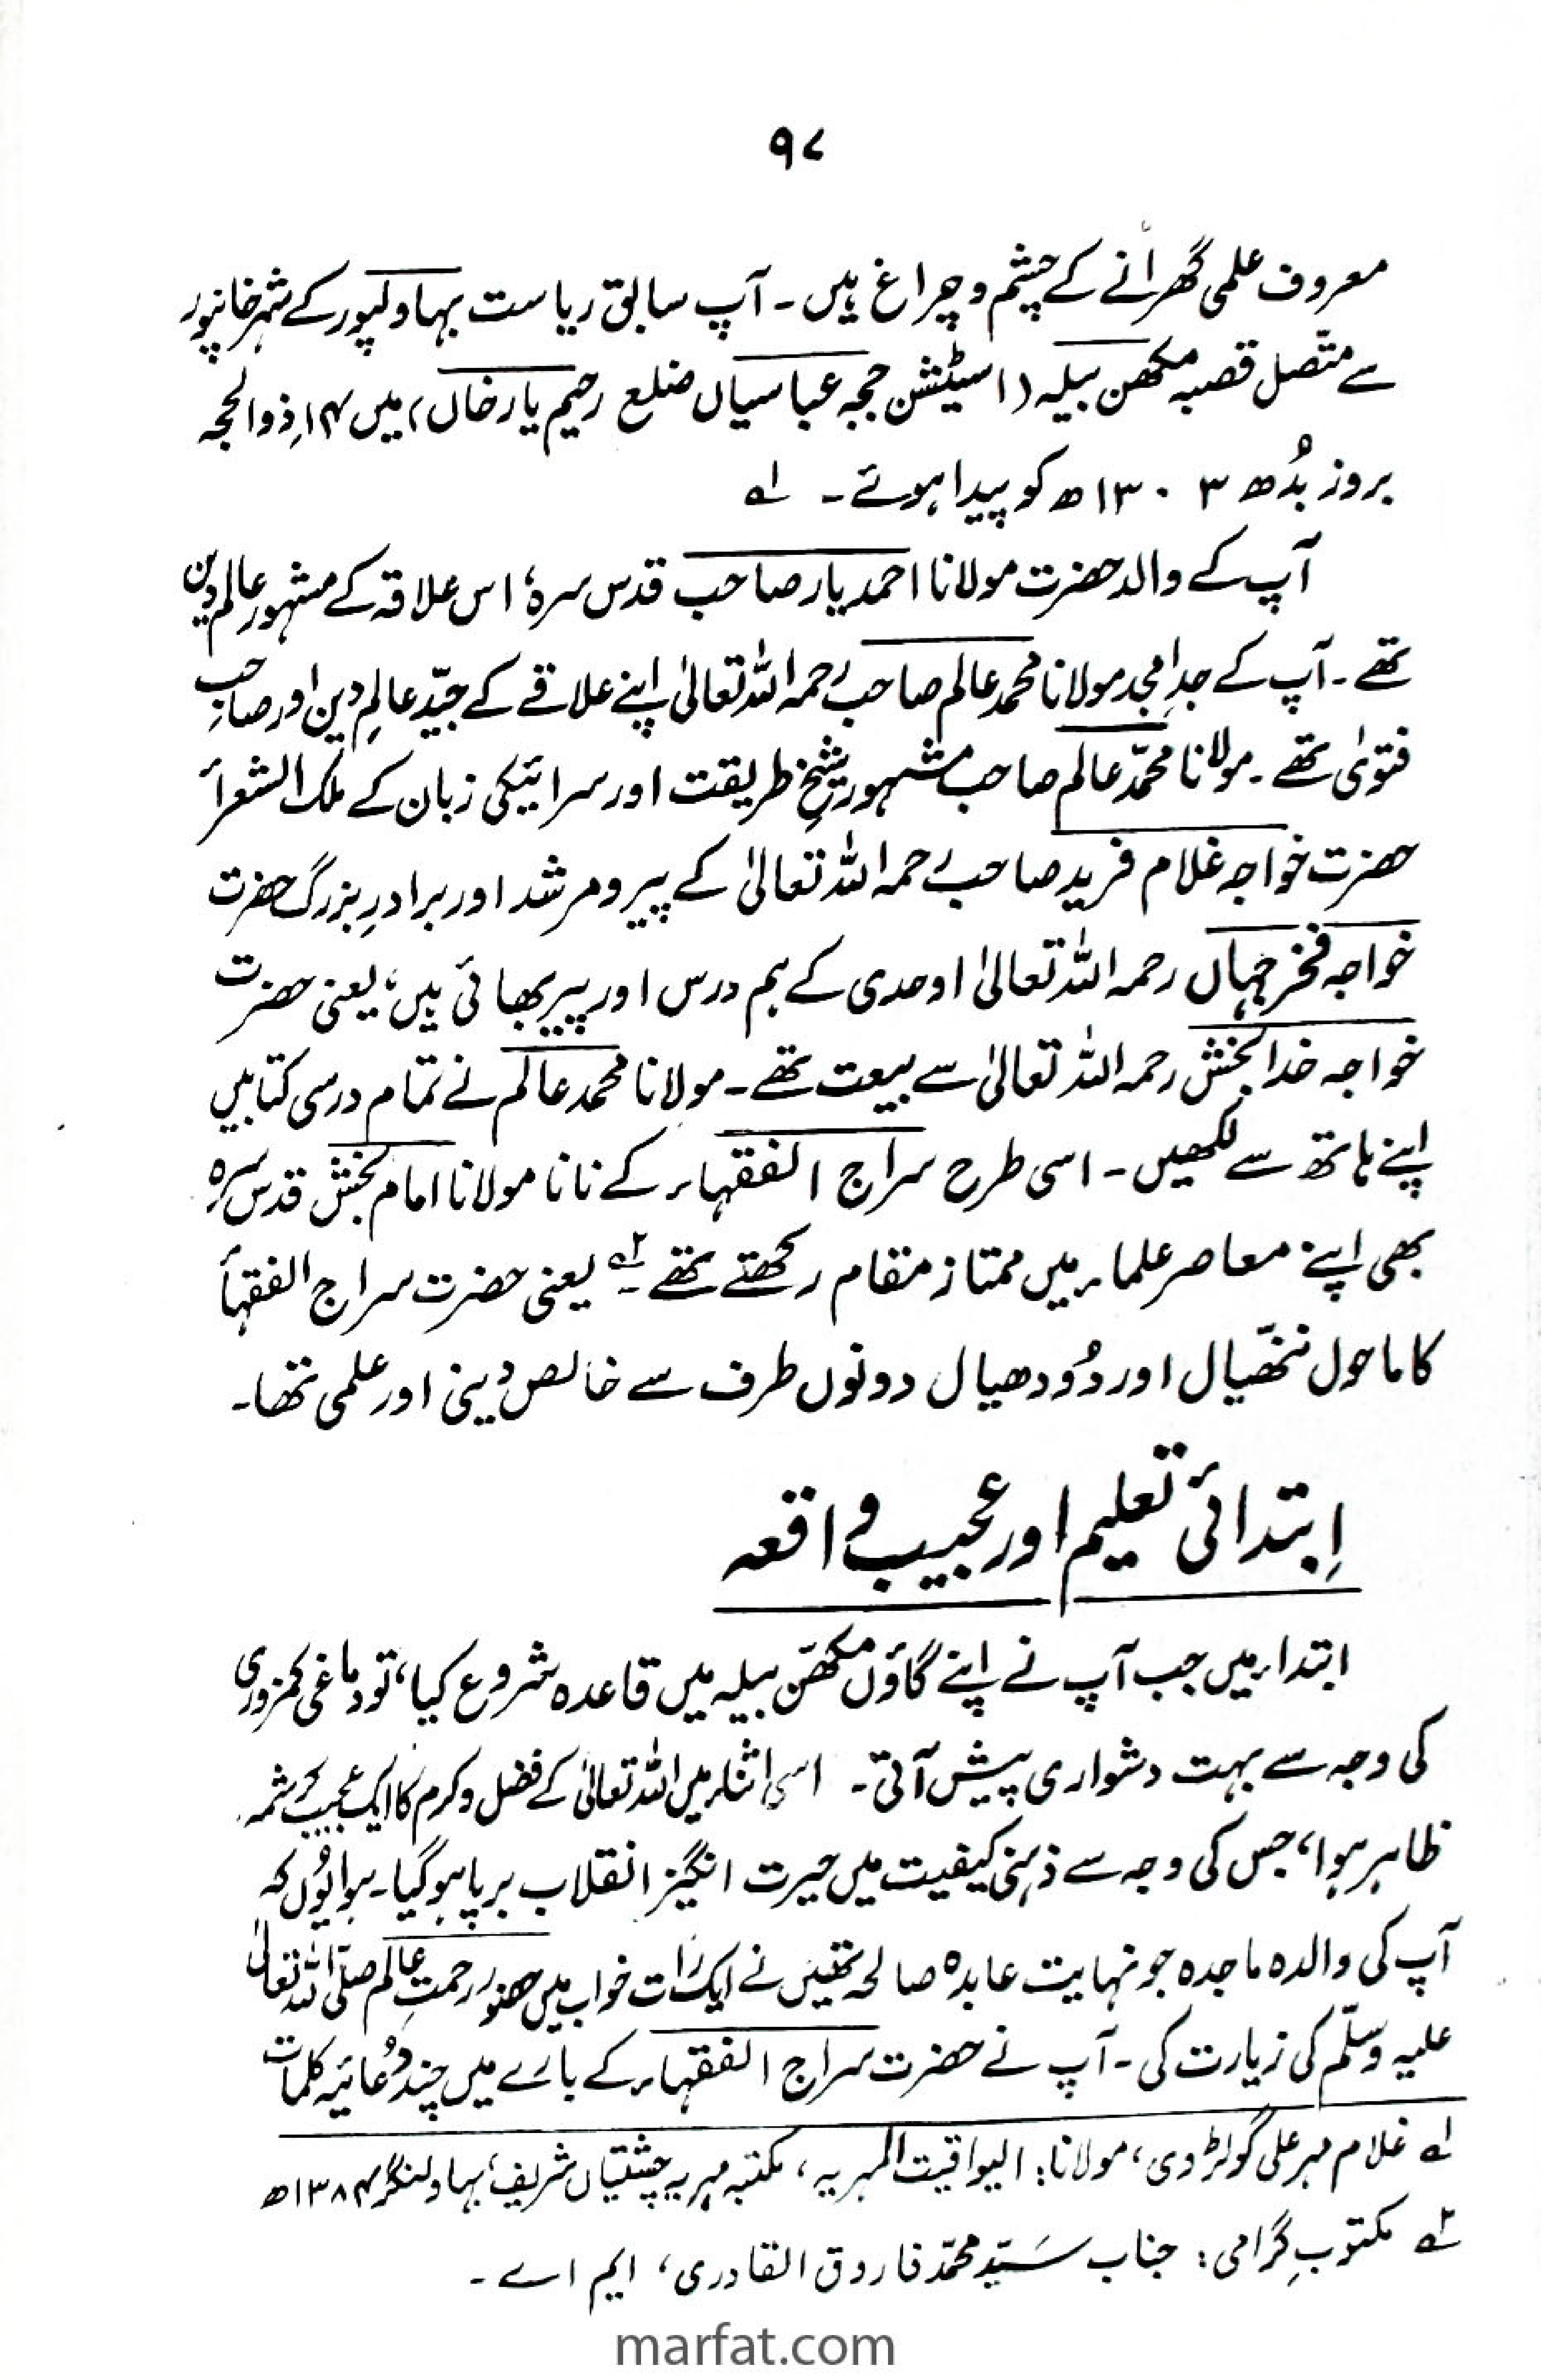 ۹۷
معروف علمی گھرانے کے چشم و چراغ ہیں۔ آپ سابق ریاست بہاولپور کے شہر خانپور
سے متّصل قصبہ مکھن بیلہ (اسٹیشن ججہ عباسیاں ضلع رحیم یار خاں) میں ۱۴؍ ذوالحجہ
بروز بُدھ ۱۳۰۳ھ کو پیدا ہوئے۔ ۱ے
آپ کے والد حضرت مولانا احمد یار صاحب قدس سرہٗ اس علاقہ کے مشہور عالم دین
تھے۔ آپ کے جدِ امجد مولانا محمد عالم صاحب رحمہ اللہ تعالیٰ اپنے علاقے کے جیّد عالمِ دین اور صاحبِ
فتویٰ تھے۔ مولانا محمّد عالم صاحب مشہور شیخِ طریقت اور سرائیکی زبان کے ملک الشعرأ
حضرت خواجہ غلام فرید صاحب رحمہ اللہ تعالیٰ کے پیر و مرشد اور برادرِ بزرگ حضرت
خواجہ فخر جہاں رحمہ اللہ تعالیٰ اوحدی کے ہم درس اور پیر بھائی ہیں، یعنی حضرت
خواجہ خدا بخش رحمہ اللہ تعالیٰ سے بیعت تھے۔ مولانا محمد عالم نے تمام درسی کتابیں
اپنے ہاتھ سے لکھیں۔ اسی طرح سراج الفقہاء کے نانا مولانا امام بخش قدس سرہ
بھی اپنے معاصر علماء میں ممتاز مقام رکھتے تھے۔ ۲ے یعنی حضرت سراج الفقہأ
کا ماحول ننھّیال اور دُودھیال دونوں طرف سے خالص دینی اور علمی تھا۔
اِبتدائی تعلیم اور عجیب واقعہ
ابتداء میں جب آپ نے اپنے گاؤں مکھّن بیلہ میں قاعدہ شروع کیا، تو دماغی کمزوری
کی وجہ سے بہت دشواری پیش آتی۔ اسی اثناء میں اللہ تعالیٰ کے فضل و کرم کا ایک عجیب کرشمہ
ظاہر ہوا، جس کی وجہ سے ذہنی کیفیت میں حیرت انگیز انقلاب برپا ہو گیا۔ ہوا یُوں کہ
آپ کی والدہ ماجدہ جو نہایت عابدہ صالحہ تھیں نے ایک رات خواب میں حضور رحمتِ عالم صلّی اللہ تعالیٰ
علیہ وسلّم کی زیارت کی۔ آپ نے حضرت سراج الفقہاء کے بارے میں چند دُعائیہ کلمات
۱ے غلام مہر علی گولڑوی، مولانا: الیواقیت المہریہ، مکتبہ مہریہ چشتیاں شریف، بہاولنگر ۱۳۸۴ھ
۲ے مکتوبِ گرامی: جناب سَیّد محمّد فاروق القادری، ایم اے۔
marfat.com